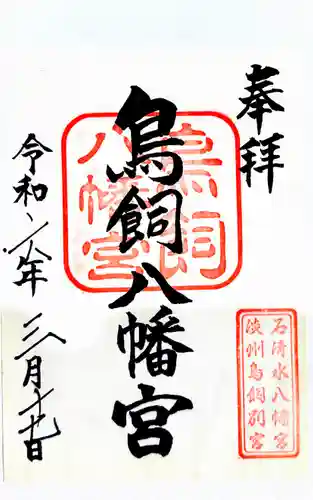 奉拝
鳥飼八幡宮
鳥飼
八幡宮
石清水八幡宮
淡州鳥飼別宮
令和六年三月十九日